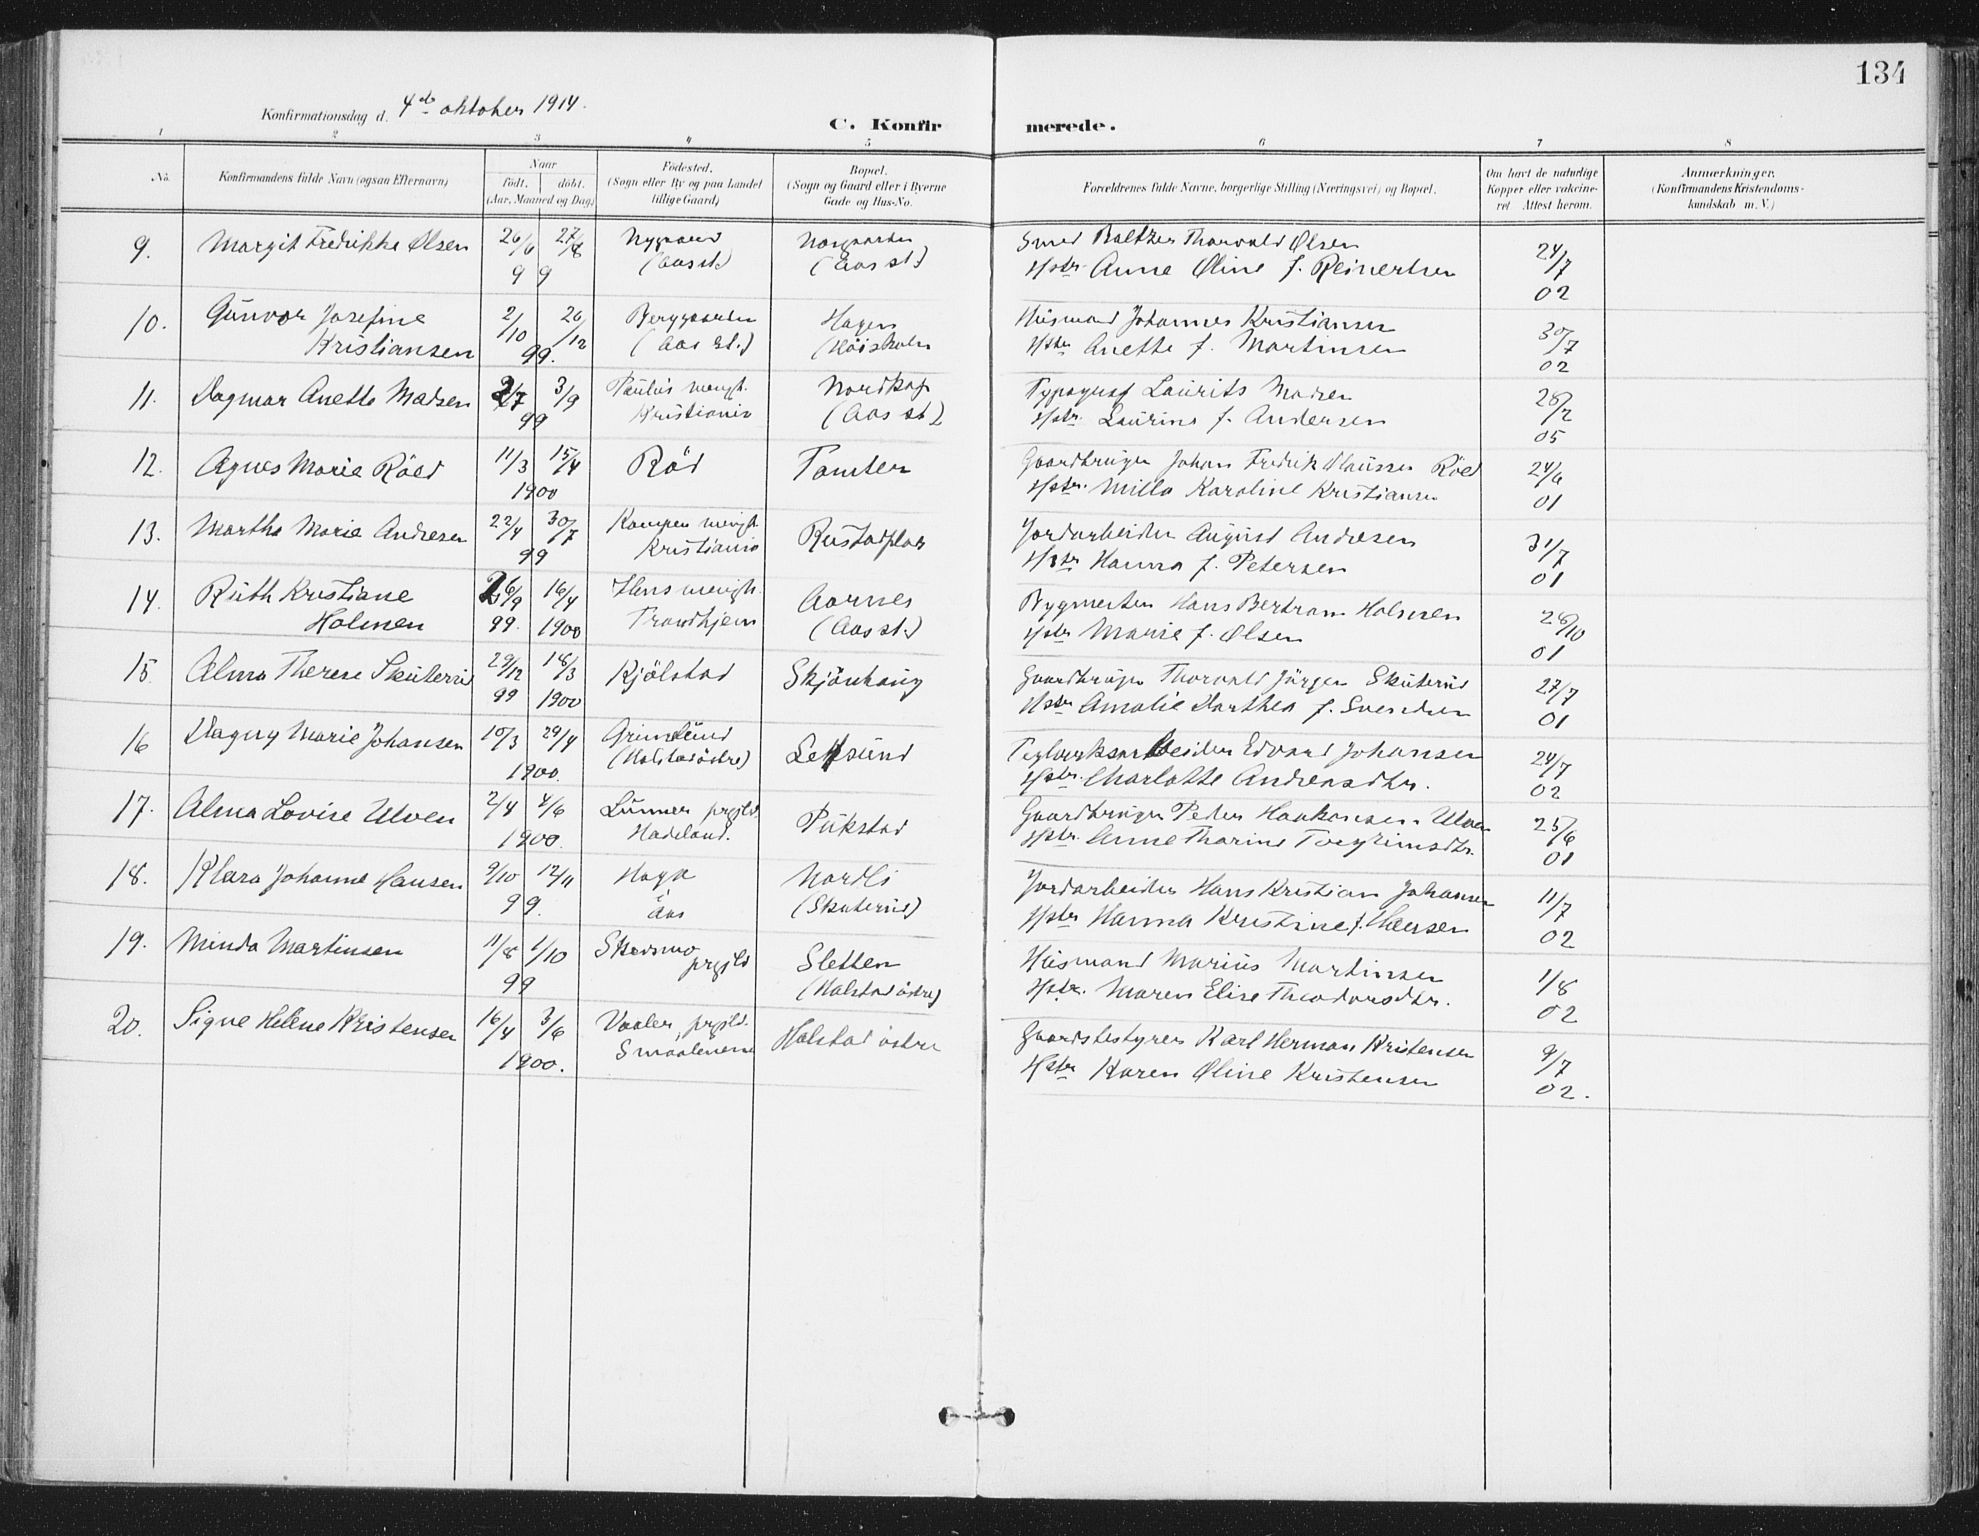 134
Konfirmationsdag d. 4de oktober 1914.
C. Konfirmerede.
1 2 3 4 5 6 7 8
No. Konfirmandens fulde Navn (ogsaa Efternavn) Naar født. døbt. (Aar, Maaned og Dag) Fødested. (Sogn eller By og paa Landet tillige Gaard) Bopæl. (Sogn og Gaard eller i Byerne Gade og Hus-No. Forældrenes fulde Navne, borgerlige Stilling (Næringsvei) og Bopæl. Om havt de naturlige Kopper eller vakcineret Attest herom. Anmerkninger. (Konfirmandens Kristendomskundskab m. V.)
9. Margit Fredrikke Olsen 26/6 27/8 Smed Baltzer Thorvald Olsen 24/7
99 (Aas st.) (Aas st.) Hstr. Anne Oline f. Reinertsen 02
10. Gunvor Josefine 2/10 26/12 Hagen Husmand Johannes Kristiansen 30/7
Kristiansen 99. (Aas st.) Hstr Anette f. Martinsen 02
11. Dagmar Anette Madsen 2/7 3/9 Paulus mengh. Nordkap Typograf Laurits Madsen 28/2
99 Kristiania (Aas st.) Hstr. Laurine f. Andersen 05
12. Agnes Marie Röed 11/3 15/4 Röd Tomter Gaardbruger Johan Fredrik Olaussen Röed 24/6
1900 Hstr. Milla Karoline Kristiansen 01
13. Martha Marie Andresen 22/4 30/7 Kampen mengh. Rustadplas Jordarbeider August Andresen 31/7
99 Kristiania Hstr Hanna f. Petersen 01
14. Ruth Kristiane 26/9 16/4 mengh. Aarnes Bygmester Hans Bertram Holmen 28/10
Holmen 99. 1900 Trondhjem (Aas st.) Hstr Marie f. Olsen 01
15. Alma Therese Skuterud 29/12 18/3 Kjölstad Skjönhaug Gaardbruger Thorvald Jürgen Skuterud 27/7
99 1900 Hstr Amalie Dorthea f. Svendsen 01
16 Dagny Marie Johansen 10/3 29/4 Grimslund Teglverksarbeider Edvard Johansen 24/7
1900. (Holstad östre) Hstr. Charlotte Andreasdtr. 02
17. Alma Lovise Ulven 2/4 4/6 Lunner prgjld. Pukstad Gaardbruger Peder Haakonsen Ulven 25/6
1900. Hadeland. Hstr. Anne Thorine Torgrimsdtr. 01
18. Klara Johanne Hansen 9/10 12/11 Haga Nordli Jordarbeider Hans Kristian Johansen 11/7
99. Aas (Skuterud) Hstr Hanna Kristine f. Hansen 02
19. Minda Martinsen 11/8 1/10 Skedsmo prgjld Sletten Husmand Marius Martinsen 1/8
99 (Holstad östre) Hstr. Maren Elise Theodorsdtr. 02
20. Signe Helene Kristensen 16/4 3/6 Vaaler prgjld. Holstad östre Gaardsbestyrer Karl Herman Kristensen 9/7
1900. Smaalenene Hstr Karen Oline Kristensen 02.